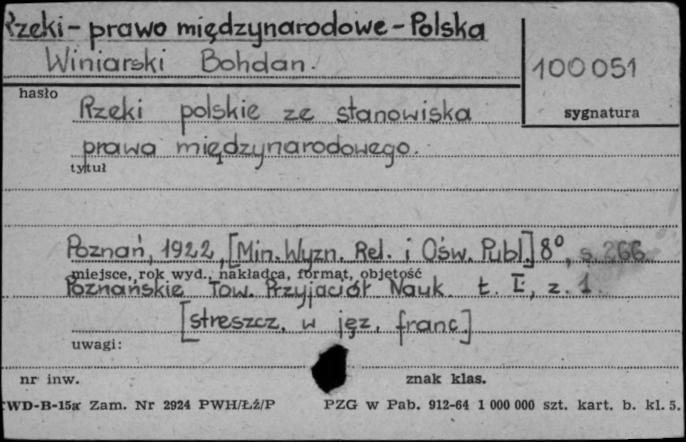 Rzeki - prawo międzynarodowe - Polska
Winiarski Bohdan.
100051
hasło
sygnatura
Rzeki polskie ze stanowiska
prawa międzynarodowego.
tytuł
Poznań, 1922, [Min. Wyzn. Rel. i Ośw. Publ.] 8°, s. 266.
miejsce, rok wyd., nakładca, format, objętość
Poznańskie Tow. Przyjaciół Nauk. t. I, z. 1.
[streszcz. w jęz. franc.]
uwagi:
nr inw.
znak klas.
WD-B-15a Zam. Nr 2924 PWH/Łź/P PZG w Pab. 912-64 1 000 000 szt. kart. b. kl. 5.